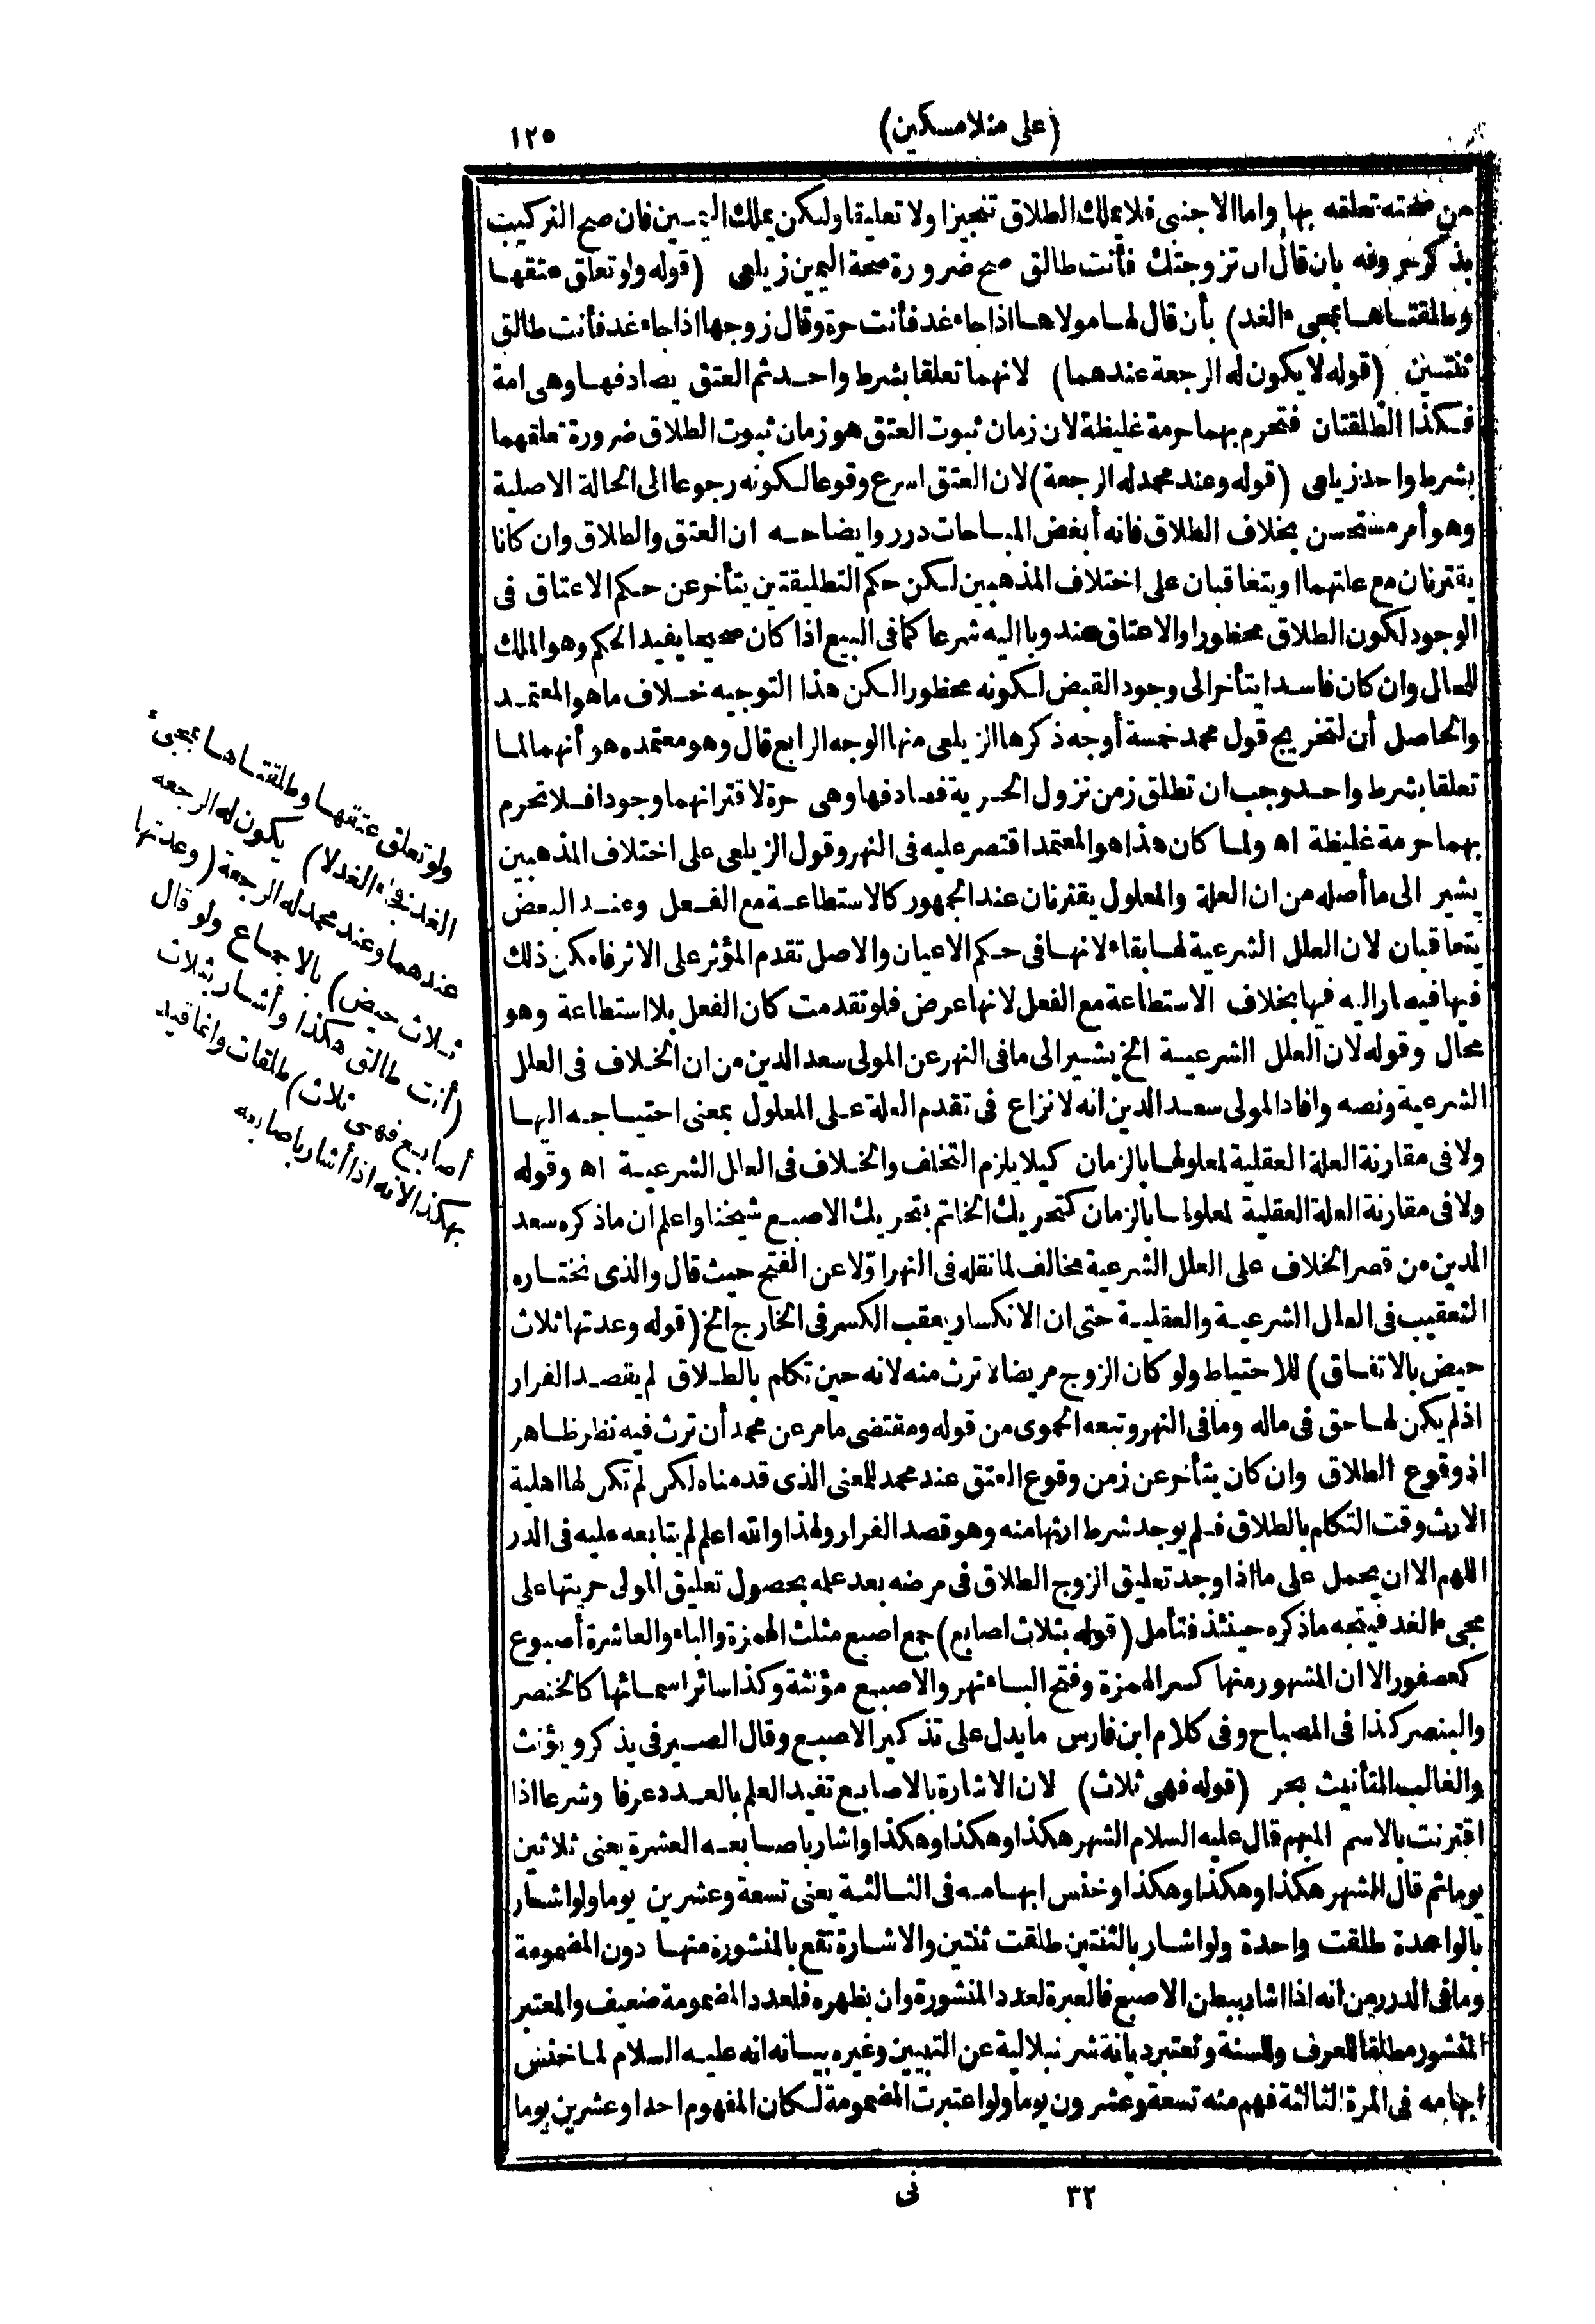 (على منلا مسكين)
١٢٥
من تعلقه بها واما الاجنبى فلا يملك الطلاق تنجيزا ولا تعليقا ولكن يملك اليمين فان صح التركيب
بذكر حروفه بان قال ان تزوجتك فأنت طالق صح ضرورة صحة اليمين زيلعى (قوله ولو تعلق عتقها
وطلقتاها بمجىء الغد) بأن قال لها مولاها اذا جاء غد فأنت حرة وقال زوجها اذا جاء غد فأنت طالق
ثنتين (قوله لا يكون له الرجعة عندهما) لانهما تعلقا بشرط واحد ثم العتق يصادفها وهى امة
فكذا الطلقتان فتحرم بهما حرمة غليظة لان زمان ثبوت العتق هو زمان ثبوت الطلاق ضرورة تعلقهما
بشرط واحد زيلعى (قوله وعند محمد له الرجعة) لان العتق اسرع وقوعا لكونه رجوعا الى الحالة الاصلية
وهو أمر مستحسن بخلاف الطلاق فانه أبغض المباحات درر وايضاحه ان العتق والطلاق وان كانا
يقترنان مع علتهما او يتعاقبان على اختلاف المذهبين لكن حكم التطليقتين يتأخر عن حكم الاعتاق فى
الوجود لكون الطلاق محظورا والاعتاق مندوبا اليه شرعا كما فى البيع اذا كان صحيحا يفيد الحكم وهو الملك
للحال وان كان فاسدا يتأخر الى وجود القبض لكونه محظورا لكن هذا التوجيه خلاف ما هو المعتمد
والحاصل أن لتخريج قول محمد خمسة أوجه ذكرها الزيلعى منها الوجه الرابع قال وهو معتمده هو أنهما لما
تعلقا بشرط واحد وجب ان تطلق زمن نزول الحرية فصادفها وهى حرة لاقترانهما وجودا فلا تحرم
بهما حرمة غليظة اه ولما كان هذا هو المعتمد اقتصر عليه فى النهر وقول الزيلعى على اختلاف المذهبين
يشير الى ما أصله من ان العلة والمعلول يقترنان عند الجمهور كالاستطاعة مع الفعل وعند البعض
يتعاقبان لان العلل الشرعية لها بقاء لانها فى حكم الاعيان والاصل تقدم المؤثر على الاثر فامكن ذلك
فيها بخلاف الاستطاعة مع الفعل لانها عرض فلو تقدمت كان الفعل بلا استطاعة وهو
محال وقوله لان العلل الشرعية الخ يشير الى ما فى النهر عن المولى سعد الدين من ان الخلاف فى العلل
الشرعية ونصه وافاد المولى سعد الدين انه لا نزاع فى تقدم العلة على المعلول بمعنى احتياجه اليها
ولا فى مقارنة العلة العقلية لمعلولها بالزمان كيلا يلزم التخلف والخلاف فى العلل الشرعية اه وقوله
ولا فى مقارنة العلة العقلية لمعلولها بالزمان كتحريك الخاتم بتحريك الاصبع شيخنا واعلم ان ما ذكره سعد
الدين من قصر الخلاف على العلل الشرعية مخالف لما نقله فى النهر اولا عن الفتح حيث قال والذى نختاره
التعقيب فى العلل الشرعية والعقلية حتى ان الانكسار يعقب الكسر فى الخارج الخ (قوله وعدتها ثلاث
حيض بالاتفاق) للاحتياط ولو كان الزوج مريضا لا ترث منه لانه حين تكلم بالطلاق لم يقصد الفرار
اذ لم يكن لها حق فى ماله وما فى النهر وتبعه الحموى من قوله ومقتضى ما مر عن محمد أن ترث فيه نظر ظاهر
اذ وقوع الطلاق وان كان يتأخر عن زمن وقوع العتق عند محمد للمعنى الذى قدمناه لكن لم تكن لها اهلية
الارث وقت التكلم بالطلاق فلم يوجد شرط ارثها منه وهو قصد الفرار ولهذا والله اعلم لم يتابعه عليه فى الدر
اللهم الا ان يحمل على ما اذا وجد تعليق الزوج الطلاق فى مرضه بعد علمه بحصول تعليق المولى حريتها على
مجىء الغد فيتجه ما ذكره حينئذ فتأمل (قوله بثلاث اصابع) جمع اصبع مثلث الهمزة والباء والعاشرة أصبوع
كعصفور الا ان المشهور منها كسر الهمزة وفتح الباء نهر والاصبع مؤنثة وكذا سائر اسمائها كالخنصر
والبنصر كذا فى المصباح وفى كلام ابن فارس ما يدل على تذكير الاصبع وقال الصيرفى يذكر ويؤنث
والغالب التأنيث بحر (قوله فهى ثلاث) لان الاشارة بالاصابع تفيد العلم بالعدد عرفا وشرعا اذا
اقترنت بالاسم المبهم قال عليه السلام الشهر هكذا وهكذا وهكذا واشار باصابعه العشرة يعنى ثلاثين
يوما ثم قال الشهر هكذا وهكذا وهكذا وخنس ابهامه فى الثالثة يعنى تسعة وعشرين يوما ولو اشار
بالواحدة طلقت واحدة ولو اشار بالثنتين طلقت ثنتين والاشارة تقع بالمنشورة منها دون المضمومة
وما فى الدرر من انه اذا اشار ببطن الاصبع فالعبرة لعدد المنشورة وان بظهره فلعدد المضمومة ضعيف والمعتبر
المنشور مطلقا للعرف وللسنة وتعتبر ديانة شرنبلالية عن التبيين وغيره بيانه انه عليه السلام لما خنس
ابهامه فى المرة الثالثة فهم منه تسعة وعشرون يوما ولو اعتبرت المضمومة لكان المفهوم احدا وعشرين يوما
ولو تعلق عتقها وطلقتاها بمجىء
الغد الغد لا) يكون له الرجعه
عندهما وعند محمد له الرجعة (وعدتها
ثلاث حيض) بالاجماع ولو قال
(أنت طالق هكذا وأشار بثلاث
أصابع فهى ثلاث) طلقات وانما قيد
بهكذا لانه اذا أشار باصابعه
٣٢
نى